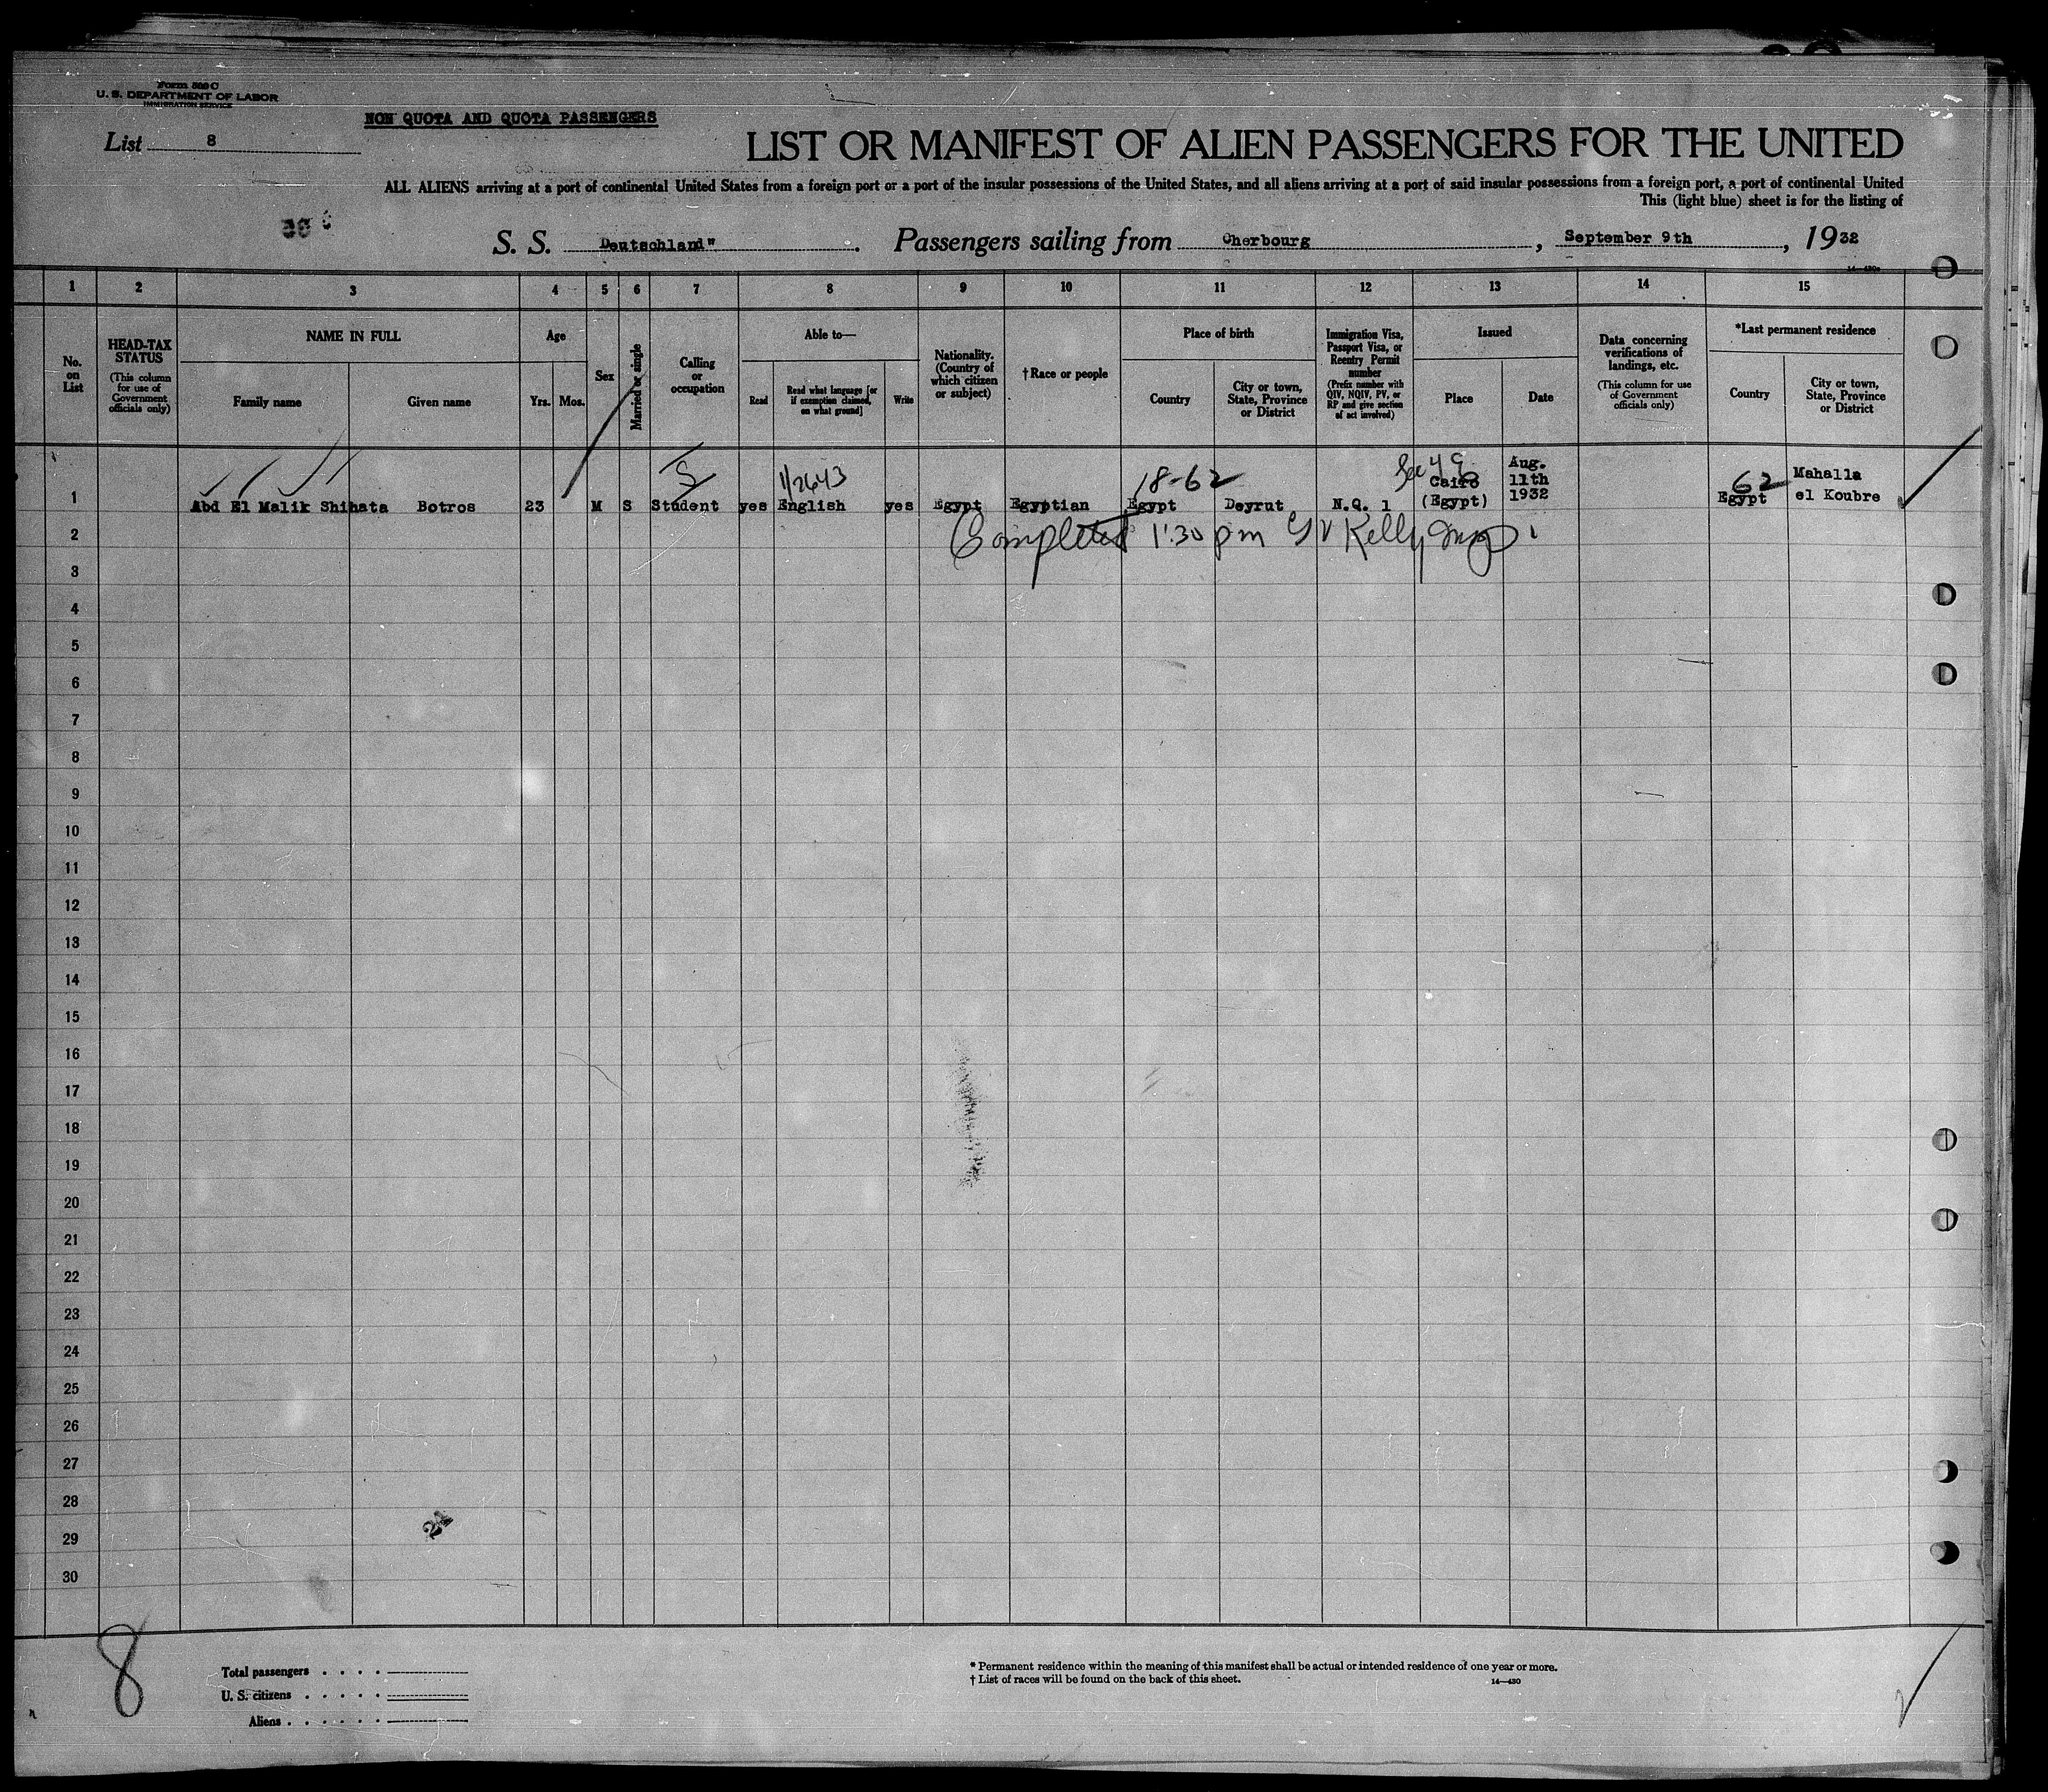 Form 500 C
U. S. DEPARTMENT OF LABOR
IMMIGRATION SERVICE
NON QUOTA AND QUOTA PASSENGERS
List 8
LIST OR MANIFEST OF ALIEN PASSENGERS FOR THE UNITED
ALL ALIENS arriving at a port of continental United States from a foreign port or a port of the insular possessions of the United States, and all aliens arriving at a port of said insular possessions from a foreign port, a port of continental United
This (light blue) sheet is for the listing of
S. S. Deutschland" . Passengers sailing from Cherbourg , September 9th , 1932
1 2 3 4 5 6 7 8 9 10 11 12 13 14 15
No. on List
HEAD-TAX STATUS (This column for use of Government officials only)
NAME IN FULL
Family name
Given name
Age
Yrs. Mos.
Sex
Married or single
Calling or occupation
Able to—
Read
Read what language [or if exemption claimed, on what ground]
Write
Nationality. (Country of which citizen or subject)
†Race or people
Place of birth
Country
City or town, State, Province or District
Immigration Visa, Passport Visa, or Reentry Permit number (Prefix number with QIV, NQIV, PV, or RP and give section of act involved)
Issued
Place
Date
Data concerning verifications of landings, etc. (This column for use of Government officials only)
*Last permanent residence
Country
City or town, State, Province or District
S 1/2643 18-62 62
1 Abd El Malik Shihata Botros 23 M S Student yes English yes Egypt Egyptian Egypt Deyrut N.Q. 1 Cairo (Egypt) Aug. 11th 1932 Egypt Mahalla el Koubre
2 Completed 1:30 pm Kelly Insp.
3
4
5
6
7
8
9
10
11
12
13
14
15
16
17
18
19
20
21
22
23
24
25
26
27
28
29
30
24
8
Total passengers . . . .
U. S. citizens . . . . .
Aliens . . . . . .
* Permanent residence within the meaning of this manifest shall be actual or intended residence of one year or more.
† List of races will be found on the back of this sheet.
14—430